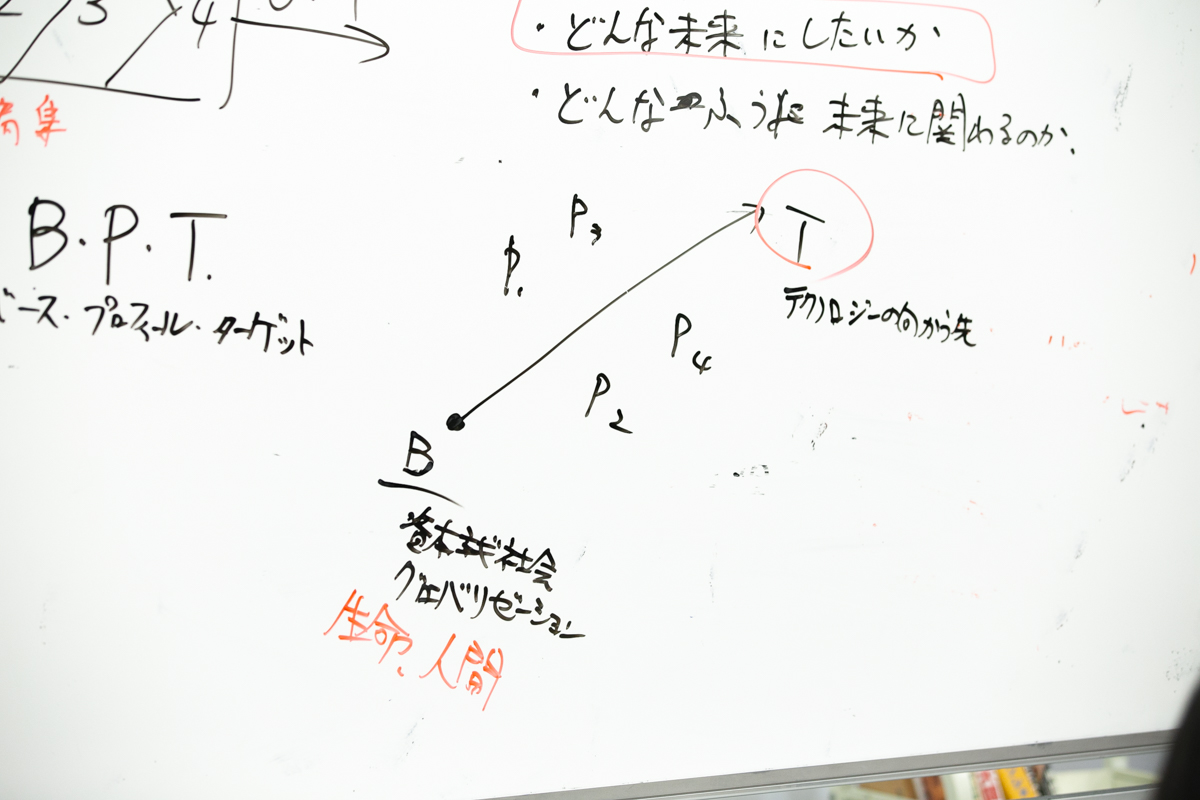 3 4
・どんな未来にしたいか
・どんなふうに未来に関わるのか.
集
B.P.T.
ベース・プロフィール・ターゲット
P3
P1
T
テクノロジーの向かう先
P4
P2
B
資本主義社会
グローバリゼーション
生命、人間